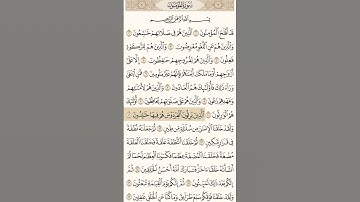 سُورَةُ المُؤْمِنُونَ
بِسْمِ ٱللَّهِ ٱلرَّحْمَٰنِ ٱلرَّحِيمِ
قَدْ أَفْلَحَ ٱلْمُؤْمِنُونَ ١ ٱلَّذِينَ هُمْ فِي صَلَاتِهِمْ خَٰشِعُونَ ٢
وَٱلَّذِينَ هُمْ عَنِ ٱللَّغْوِ مُعْرِضُونَ ٣ وَٱلَّذِينَ هُمْ لِلزَّكَوٰةِ
فَٰعِلُونَ ٤ وَٱلَّذِينَ هُمْ لِفُرُوجِهِمْ حَٰفِظُونَ ٥ إِلَّا عَلَىٰٓ
أَزْوَٰجِهِمْ أَوْ مَا مَلَكَتْ أَيْمَٰنُهُمْ فَإِنَّهُمْ غَيْرُ مَلُومِينَ ٦ فَمَنِ ٱبْتَغَىٰ
وَرَآءَ ذَٰلِكَ فَأُو۟لَٰٓئِكَ هُمُ ٱلْعَادُونَ ٧ وَٱلَّذِينَ هُمْ لِأَمَٰنَٰتِهِمْ
وَعَهْدِهِمْ رَٰعُونَ ٨ وَٱلَّذِينَ هُمْ عَلَىٰ صَلَوَٰتِهِمْ يُحَافِظُونَ ٩ أُو۟لَٰٓئِكَ
هُمُ ٱلْوَٰرِثُونَ ١٠ ٱلَّذِينَ يَرِثُونَ ٱلْفِرْدَوْسَ هُمْ فِيهَا خَٰلِدُونَ ١١
وَلَقَدْ خَلَقْنَا ٱلْإِنسَٰنَ مِن سُلَٰلَةٍ مِّن طِينٍ ١٢ ثُمَّ جَعَلْنَٰهُ نُطْفَةً
فِي قَرَارٍ مَّكِينٍ ١٣ ثُمَّ خَلَقْنَا ٱلنُّطْفَةَ عَلَقَةً فَخَلَقْنَا ٱلْعَلَقَةَ
مُضْغَةً فَخَلَقْنَا ٱلْمُضْغَةَ عِظَٰمًا فَكَسَوْنَا ٱلْعِظَٰمَ لَحْمًا
ثُمَّ أَنشَأْنَٰهُ خَلْقًا ءَاخَرَ فَتَبَارَكَ ٱللَّهُ أَحْسَنُ ٱلْخَٰلِقِينَ ١٤ ثُمَّ إِنَّكُم
بَعْدَ ذَٰلِكَ لَمَيِّتُونَ ١٥ ثُمَّ إِنَّكُمْ يَوْمَ ٱلْقِيَٰمَةِ تُبْعَثُونَ ١٦
وَلَقَدْ خَلَقْنَا فَوْقَكُمْ سَبْعَ طَرَآئِقَ وَمَا كُنَّا عَنِ ٱلْخَلْقِ غَٰفِلِينَ ١٧